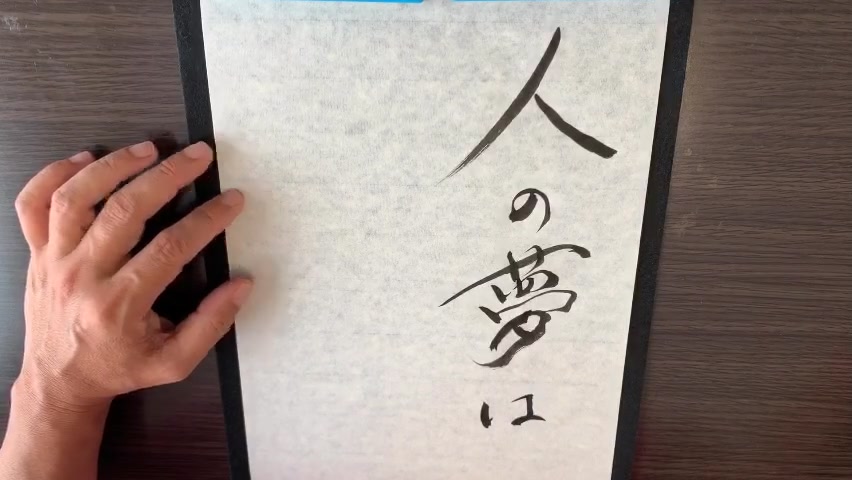 人の夢は